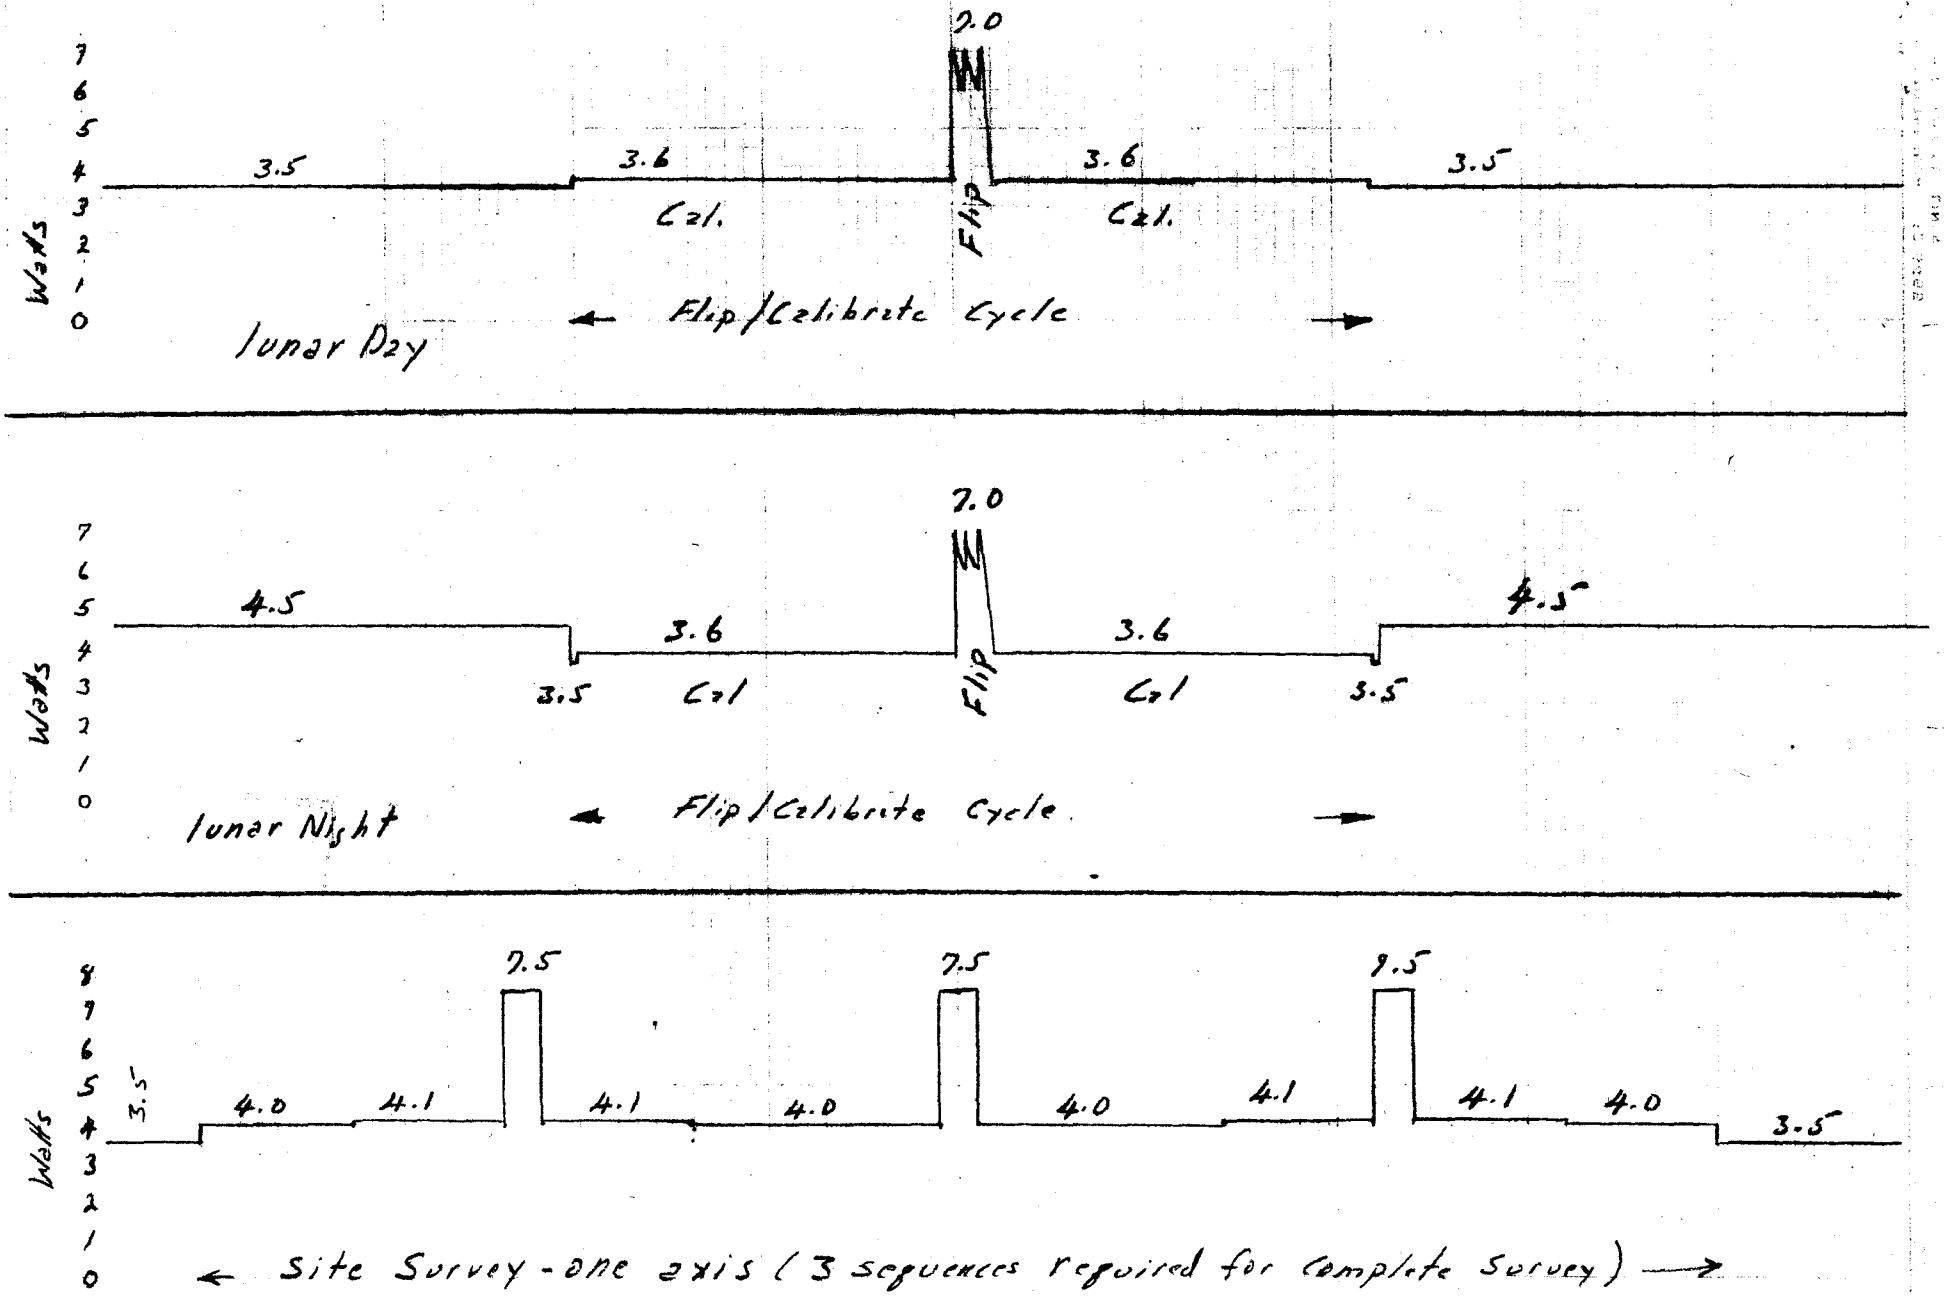 7.0
7
6
5
4
3
2
1
0
Watts
3.5
3.6
3.6
3.5
Cal.
Flip
Cal.
Flip/Calibrate Cycle
lunar Day
7.0
7
6
5
4
3
2
1
0
Watts
4.5
3.6
3.6
4.5
3.5
Cal
Flip
Cal
3.5
Flip/Calibrate Cycle
lunar Night
7.5
7.5
7.5
8
7
6
5
4
3
2
1
0
Watts
3.5
4.0
4.1
4.1
4.0
4.0
4.1
4.1
4.0
3.5
Site Survey - one axis (3 sequences required for complete survey)